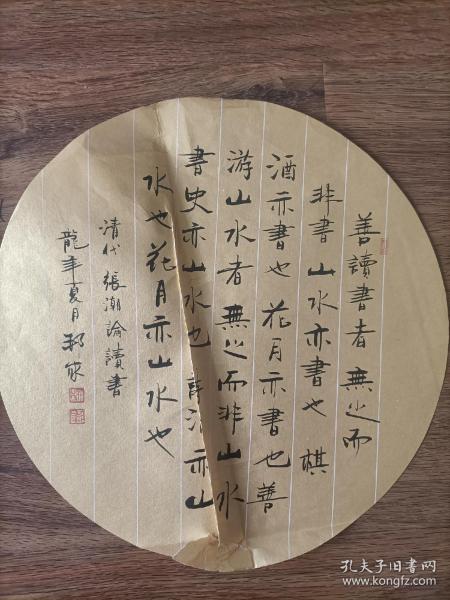 善讀書者無之而
非書山水亦書也棋
酒亦書也花月亦書也善
游山水者無之而非山水
書史亦山水也詩酒亦山
水也花月亦山水也
清代張潮論讀書
龍年夏月
孔夫子旧書网
www.kongfz.com